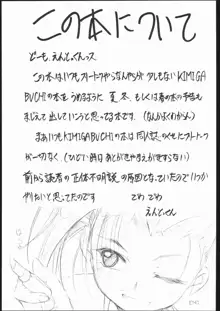 この本について
どーも、えんどっくんっス
この本はいつもフリートークやらなんやらが少しもないKIMIGA
BUCHIの本をうめるように夏、冬、もしくは春の本の予告も
まじえて出していこうと思ってる本です。(なんかよくわからん)
まあいつもKIMIGABUCHIの本は同人誌のくせにフリートーク
が一切なく(ひどい時はあとがきやまえがきすらない)
前から読者の正体不明説の原因となっていたので、いつか
作りたいと思ってたのです ごわ ごわ